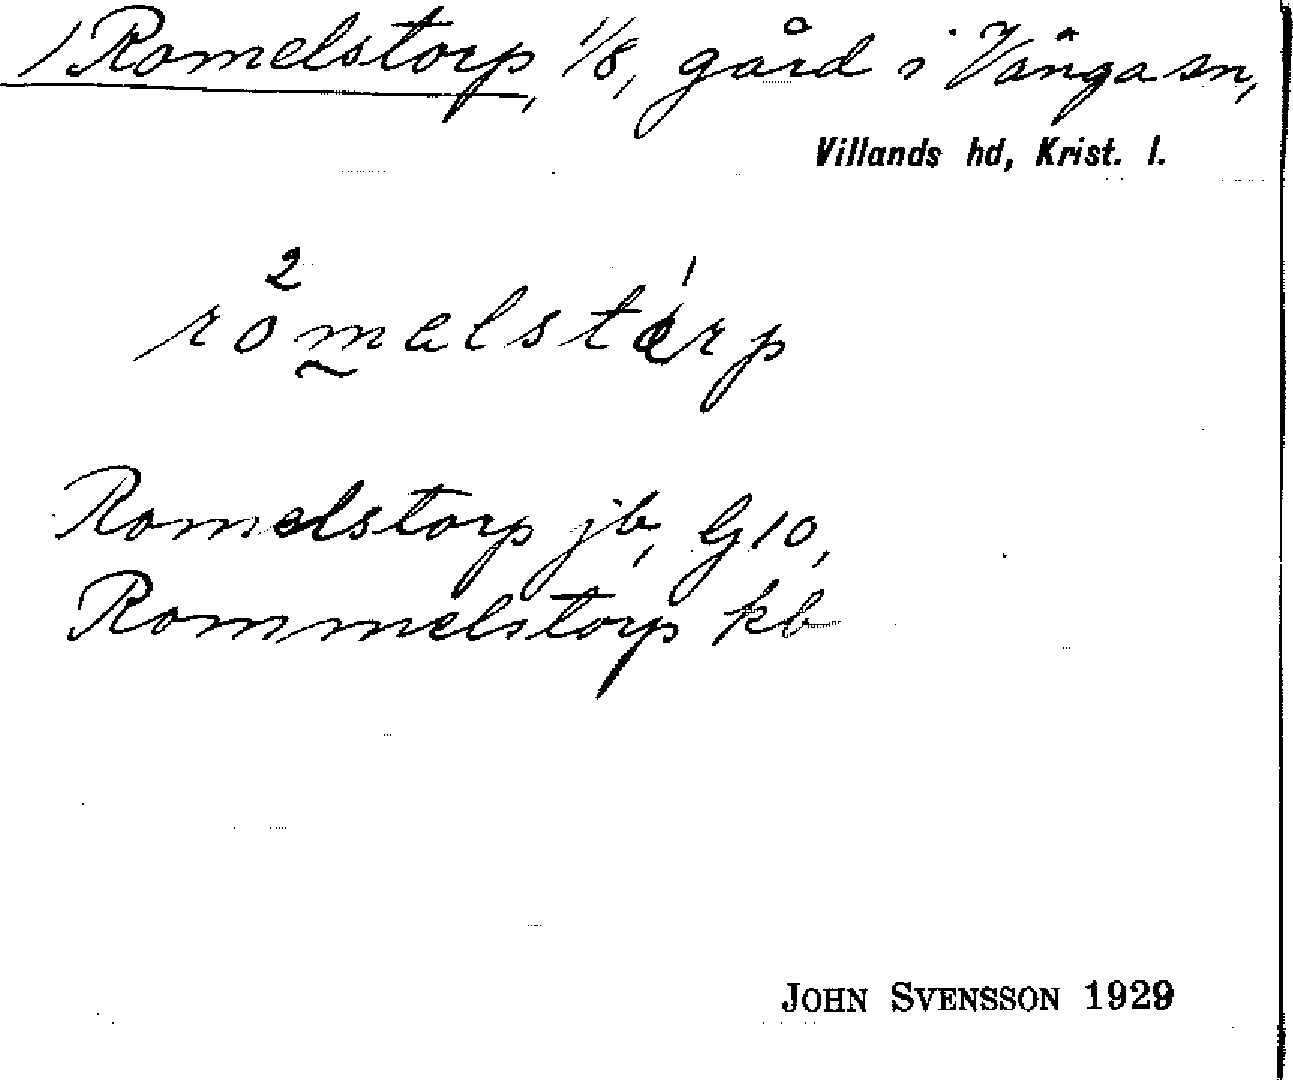 1 Romelstorp, 1/8, gård i Vånga sn,
Villands hd, Krist. l.
2 1
romelstorp
Romelstorp jb, G10,
Rommelstorp kb
JOHN SVENSSON 1929